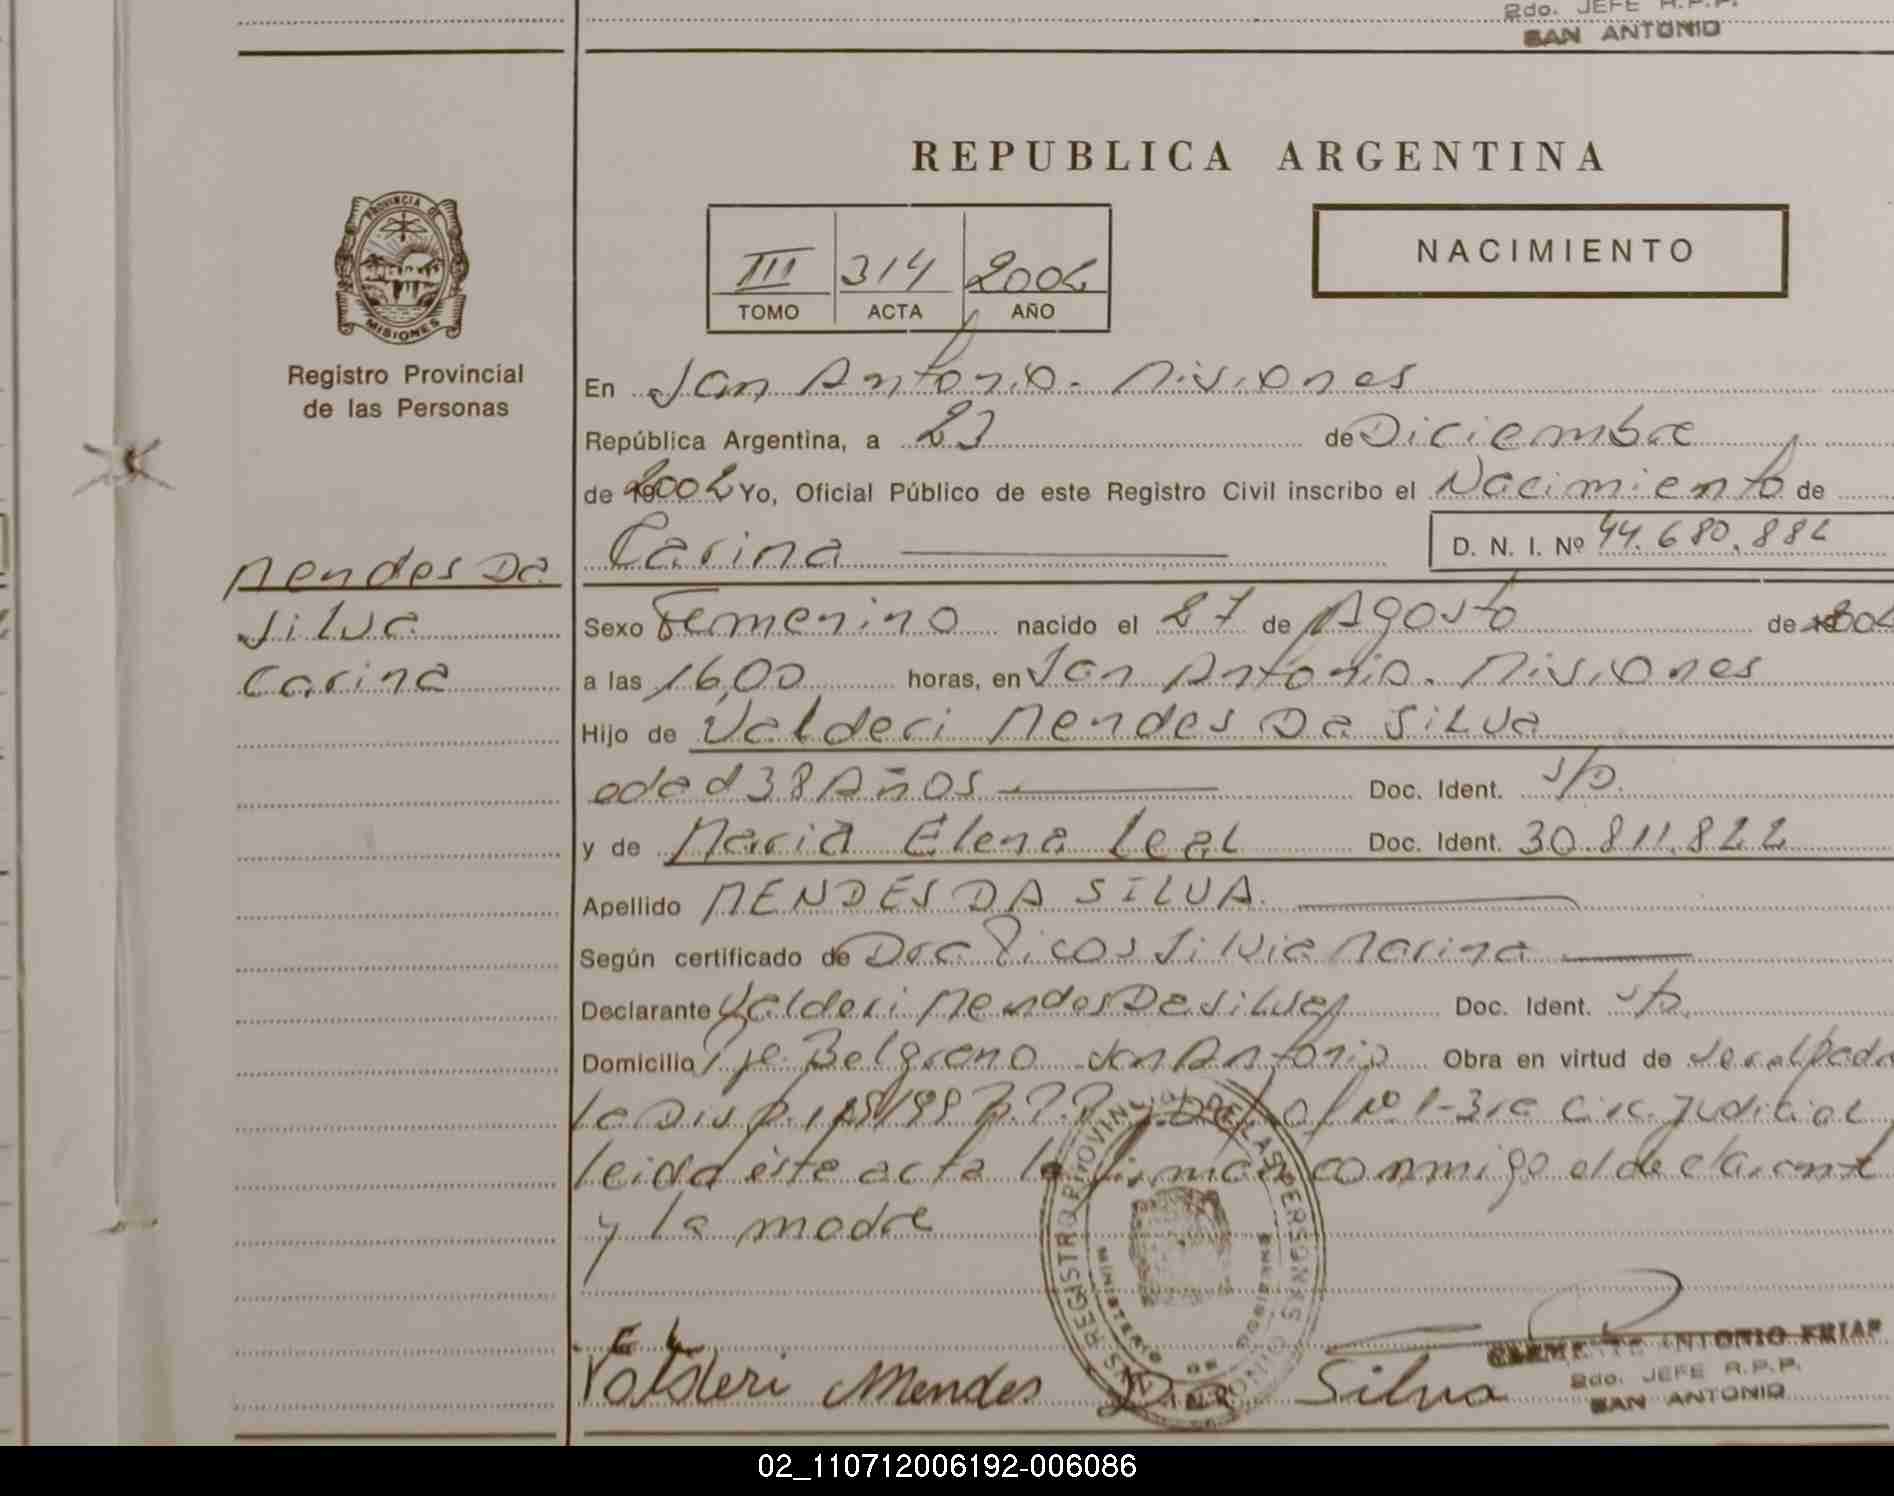 2do. JEFE R.P.P.
SAN ANTONIO
REPUBLICA ARGENTINA
PROVINCIA DE
MISIONES
Registro Provincial
de las Personas
III 314 2002
TOMO ACTA AÑO
NACIMIENTO
En San Antonio. Misiones
República Argentina, a 23 de Diciembre
de 2002 Yo, Oficial Público de este Registro Civil inscribo el Nacimiento de
Carina D. N. I. Nº 44.680.882
Mendes Da
Silva
Carina
Sexo Femenino nacido el 27 de Agosto de 2002
a las 16,00 horas, en San Antonio. Misiones
Hijo de Valderi Mendes Da Silva
edad 38 Años Doc. Ident. s/D.
y de Maria Elena Leal Doc. Ident. 30.811.822
Apellido MENDES DA SILVA.
Según certificado de Dra Picos Silvia Marina
Declarante Valderi Mendes Da Silva Doc. Ident. s/D.
Domicilio Pje. Belgrano San Antonio Obra en virtud de
Nº 1-3ra Circ. Judicial
leida éste acta la firman conmigo el declarant
y la madre
REGISTRO PROVINCIAL DE LAS PERSONAS
MINISTERIO DE GOBIERNO
E L
Valderi Mendes Da Silva
CLEMENTE ANTONIO FRIAS
2do. JEFE R.P.P.
SAN ANTONIO
02_110712006192-006086